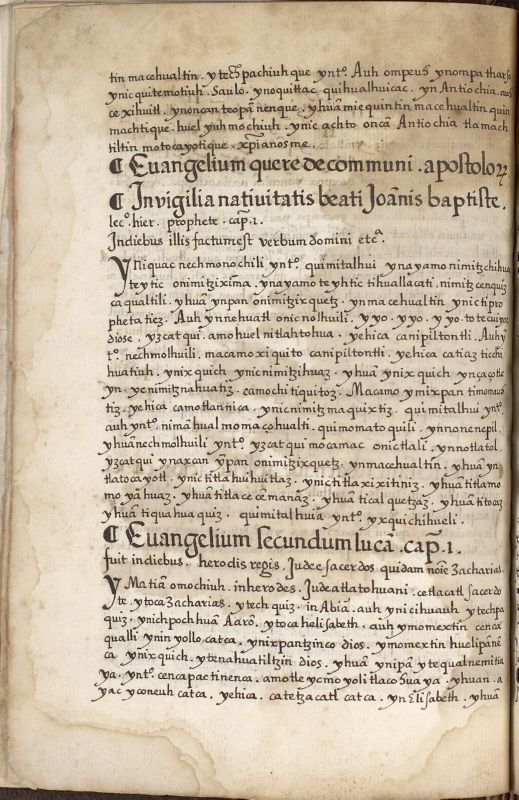 tin macehualtin. ytech pachiuhque ynto. Auh ompeuh ynompa tharso
ynic quitemotiuh Saulo. ynoquittac quihualhuicac. yn Antiochia. auh
ce xihuitl. ynoncan teopan nenque. yhuā miequintin macehualtin quin
machtique. huel yuh mochiuh. ynic achto oncā Antiochia tlamach
tiltin motocayotique. xp̄ianosme.
¶ Euangelium quere de communi. apostoloꝝ
¶ In vigilia nativitatis beati Joānis baptiste.
lec̊. hier. prophete. cap̄. 1.
In diebus illis factum est verbum domini etcᵃ.
Yniquac nechmonochili ynt̊. quimitalhui ynayamo nimitzchihua
teytic onimitziximā. ynayamo teyhtic tihuallacati. nimitzcenquiz
ca qualtili. yhuā ynpan onimitzixquetz. ynmacehualtin ynictipro
pheta tiez. Auh ynnehuatl onicnolhuili. yyo. yyo. yyo. totecuiyoe
diose. yzcatqui. amo huel nitlahtohua. yehica canipiltontli. Auh y
t̊. nechmolhuili. macamo xiquito canipiltontli. yehica catiaz ticchi
huatiuh. ynixquich ynicnimitzihuaz. yhuā ynixquich ynçaçotle
yn. yc nimitznahuatiz. camochi tiquitoz. Macamo ymixpan timomauh
tiz. yehica camotlantinica. ynicnimitzmaquixtiz. quimitalhui ynt̊.
auh ynt̊. niman hual momaçohualti. quimomatoquili. ynnonenepil.
yhuā nechmolhuili ynt̊. yzcatqui mocamac onictlali. ynnotlatol.
yzcatqui ynaxcan ȳpan onimitzixquetz. ynmacehualtin. yhuā yn
tlatocayotl. ynictitlahuihuitlaz. ynictitlaxixitiniz. yhuā titlamo
moyahuaz. yhuā titlacecēmanaz. yhuā ticalquetzaz. yhuā titocaz
yhuā tiquahuaquiz. quimitalhuia ynt̊. yxquichihueli.
¶ Euangelium secundum lucā. cap̄. 1.
fuit in diebus. herodis regis. Judee sacerdos quidam noīe Zacharias.
Y Matiān omochiuh. inherodes. Judea tlatohuani. cetlacatl sacerdo
te. ytoca Zacharias. ytech quiz. in Abiā. auh ynicihuauh ytechpa
quiz. ynichpochhuā Aarō. ytoca helisabeth. auh ymomextin cenca
qualli ynin yollo catca. ynixpantzinco dios. ymomextin huelipānē
ca ynixquich. ytenahuatiltzin dios. yhuā ynipā ytequalnemitia
ya. ynt̊. cencapactinenca. amotle ycmo yolitlacohuaya. yhuan. a
yac yconeuh catca. yehica. catetzacatl catca. yn Elisabeth. yhuā